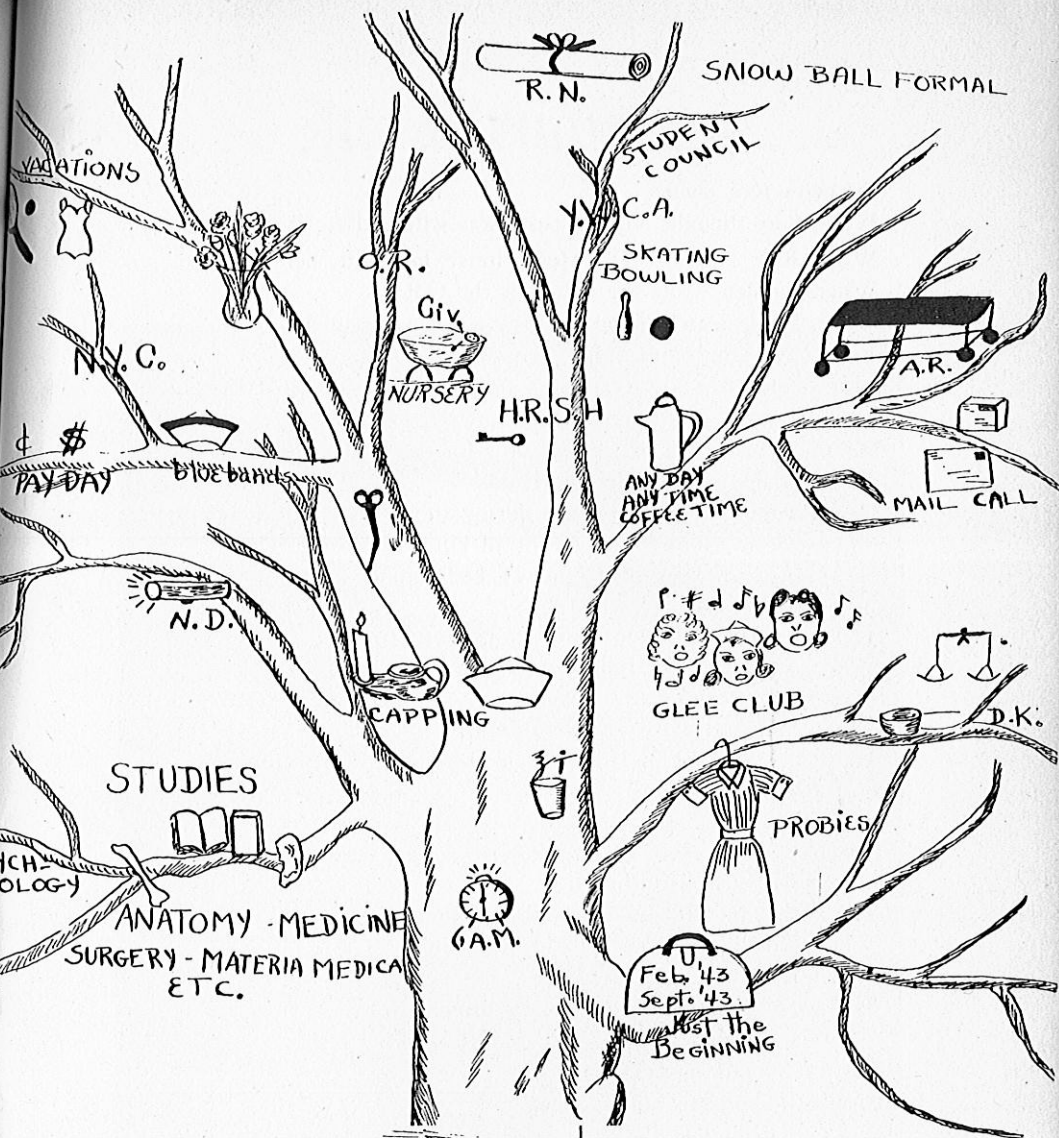 R. N.
SNOW BALL FORMAL
STUDENT
COUNCIL
VACATIONS
Y.W.C.A.
O.R.
SKATING
BOWLING
Giv.
NURSERY
N.Y.C.
A.R.
H.R.S H
¢ $
PAY DAY
blue bands
ANY DAY
ANY TIME
COFFEE TIME
MAIL CALL
N.D.
CAPPING
GLEE CLUB
D.K.
STUDIES
PROBiES
YCH-
OLOGY
ANATOMY - MEDICINE
SURGERY - MATERIA MEDICA
ETC.
6 A.M.
Feb. '43
Sept. '43
Just the
BeGiNNING